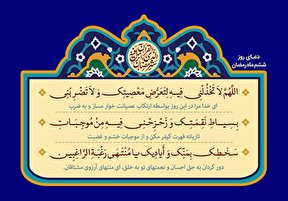 دعای روز
ششم ماه رمضان
اللَّهُمَّ لاَ تَخْذُلْنِي فِيهِ لِتَعَرُّضِ مَعْصِيَتِكَ وَ لاَ تَضْرِبْنِي
ای خدا مرا در این روز بواسطه ارتکاب عصیانت خوار مساز و به ضرب
بِسِيَاطِ نَقِمَتِكَ وَ زَحْزِحْنِي فِيهِ مِنْ مُوجِبَاتِ
تازیانه قهرت کیفر مکن و از موجبات خشم و غضبت
سَخَطِكَ بِمَنِّكَ وَ أَيَادِيكَ يَا مُنْتَهَى رَغْبَةِ الرَّاغِبِينَ
دور گردان به حق احسان و نعمتهای تو به خلق، ای منتهای آرزوی مشتاقان.